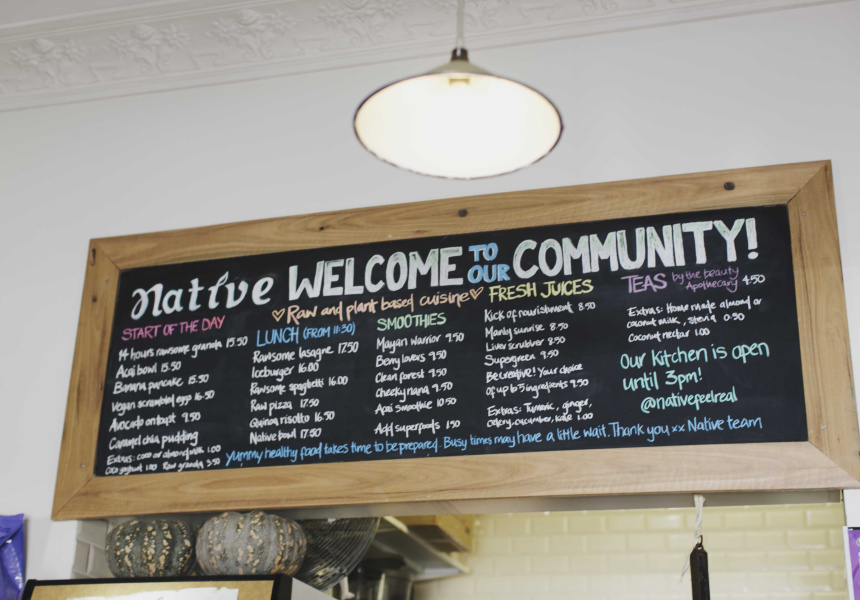 Native WELCOME TO OUR COMMUNITY!
♡Raw and plant based cuisine♡
START OF THE DAY
14 hours rawsome granola 15.50
Acai bowl 15.50
Banana pancake 15.50
Vegan scrambled eggs 16.50
Avocado on toast 9.50
Caramel chia pudding
Extras: coco or almond milk 1.00
Coco yoghurt 1.00 Raw granola 3.50
LUNCH (FROM 11:30)
Rawsome lasagne 17.50
Iceburger 16.00
Rawsome spaghetti 16.00
Raw pizza 17.50
Quinoa risotto 16.50
Native bowl 17.50
SMOOTHIES
Mayan warrior 9.50
Berry lovers 9.50
Clean forest 9.50
Cheeky nana 9.50
Acai smoothie 10.50
Add superfoods 1.50
FRESH JUICES
Kick of nourishment 8.50
Manly sunrise 8.50
Liver scrubber 8.50
Supergreen 9.50
Be creative! Your choice
of up to 5 ingredients 9.50
Extras: Tumeric, ginger,
celery, cucumber, kale 1.00
TEAS by the beauty
Apothecary 4.50
Extras: Home made almond or
coconut milk, stevia 0.50
Coconut nectar 1.00
Our Kitchen is open
until 3pm!
@nativefeelreal
Yummy healthy food takes time to be prepared. Busy times may have a little wait. Thank you xx Native team